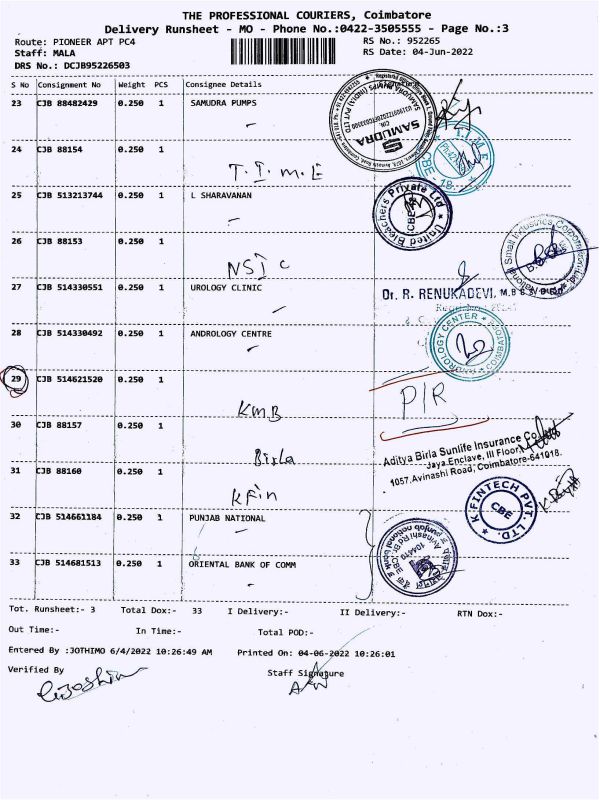 THE PROFESSIONAL COURIERS, Coimbatore
Delivery Runsheet - MO - Phone No.:0422-3505555 - Page No.:3
Route: PIONEER APT PC4 RS No.: 952265
Staff: MALA RS Date: 04-Jun-2022
DRS No.: DCJB95226503
S No Consignment No Weight PCS Consignee Details
23 CJB 88482429 0.250 1 SAMUDRA PUMPS
SAMUDRA PUMPS (INDIA) PVT LTD
SAMUDRA
24 CJB 88154 0.250 1
T.I.M.E
T.I.M.E
CBE - 18.
25 CJB 513213744 0.250 1 L SHARAVANAN
United Bleachers Private Ltd
CBE
26 CJB 88153 0.250 1
NSIC
National Small Industries Corporation Ltd
27 CJB 514330551 0.250 1 UROLOGY CLINIC
Dr. R. RENUKADEVI, M.B.B.S.
28 CJB 514330492 0.250 1 ANDROLOGY CENTRE
ANDROLOGY CENTER
COIMBATORE
29 CJB 514621520 0.250 1
KMB
P/R
30 CJB 88157 0.250 1
Birla
Aditya Birla Sunlife Insurance Co
Jaya Enclave, III Floor,
1057. Avinashi Road, Coimbatore-641018.
31 CJB 88160 0.250 1
KFin
K FINTECH PVT. LTD.
CBE
32 CJB 514661184 0.250 1 PUNJAB NATIONAL
punjab national bank
33 CJB 514681513 0.250 1 ORIENTAL BANK OF COMM
Tot. Runsheet:- 3 Total Dox:- 33 I Delivery:- II Delivery:- RTN Dox:-
Out Time:- In Time:- Total POD:-
Entered By :JOTHIMO 6/4/2022 10:26:49 AM Printed On: 04-06-2022 10:26:01
Verified By Staff Signature